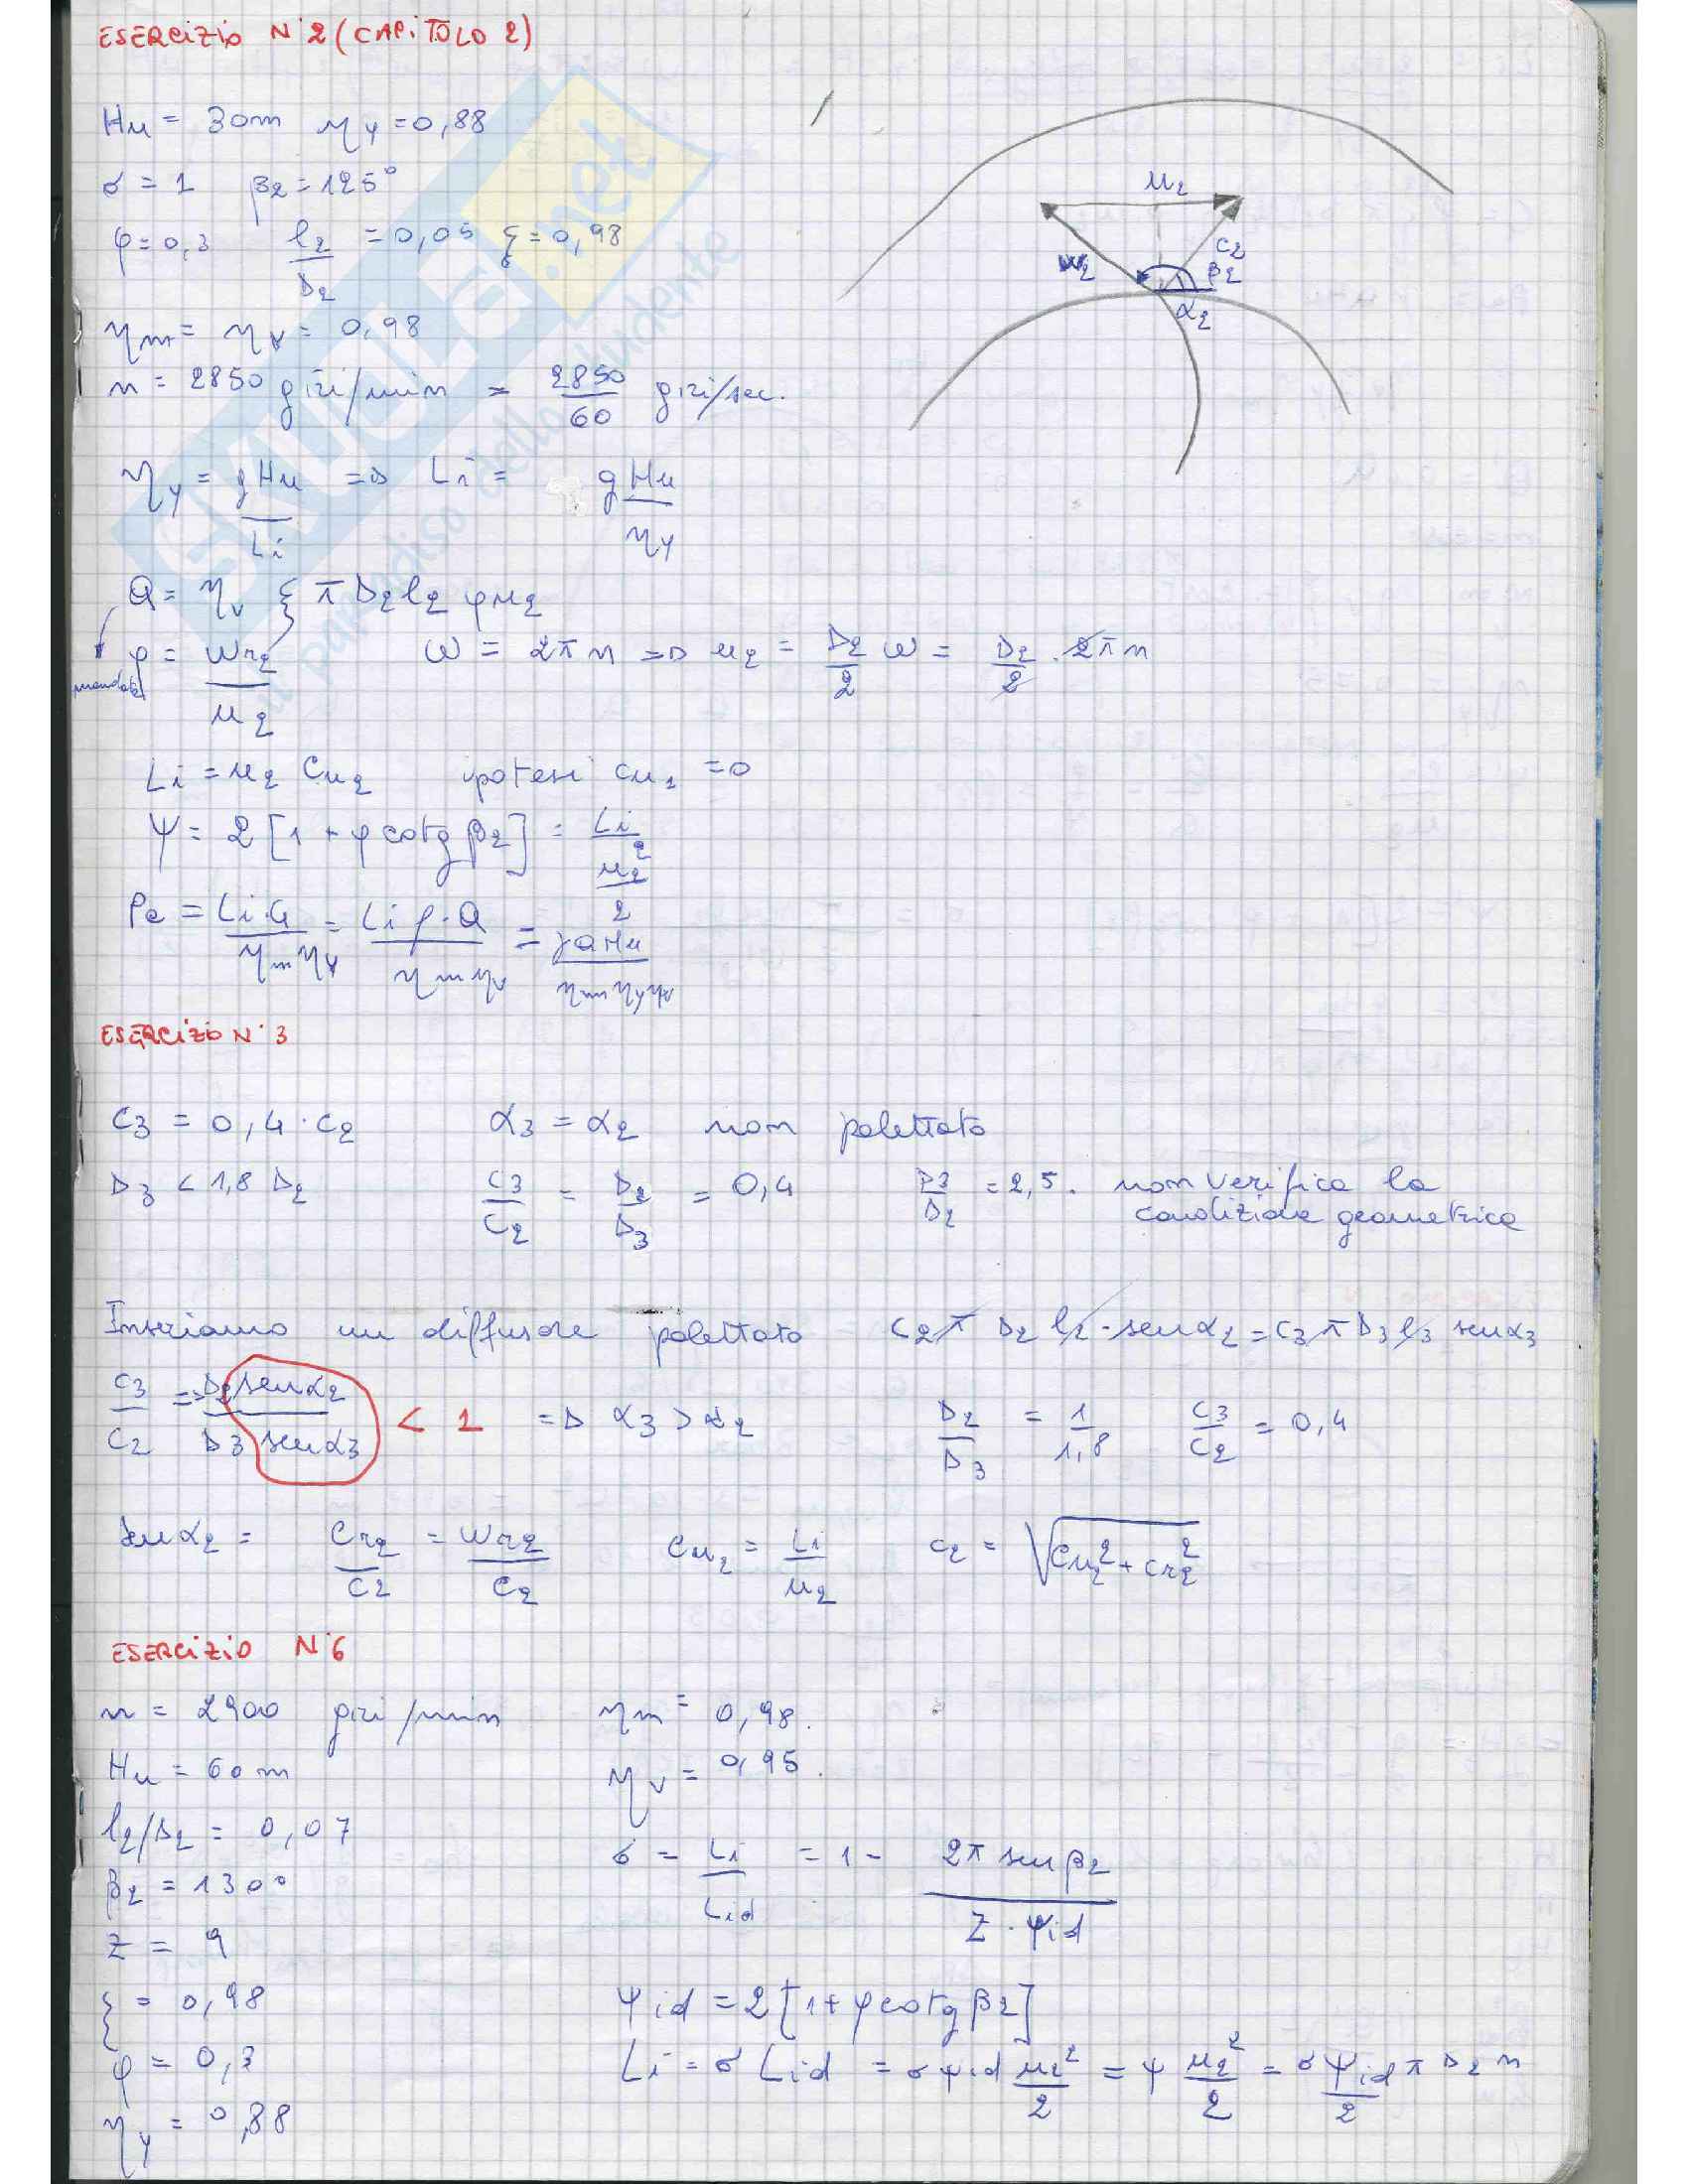 ESERCIZIO N°2 (CAPITOLO 2)
Hu = 30m ηy = 0,88
σ = 1 β2 = 125°
φ = 0,3 l2/D2 = 0,05 ξ = 0,98
ηm = ηv = 0,98
n = 2850 giri/min = 2850/60 giri/sec.
u2
w2 c2 β2
α2
ηy = gHu/Li => Li = gHu/ηy
Q = ηv ξ π D2 l2 φ u2
mandata
φ = wr2/u2 ω = 2πn => u2 = D2/2 ω = D2/2 · 2πn
Li = u2 cu2 ipotesi cu1 = 0
ψ = 2[1 + φ cotg β2] = Li/(u2²/2)
Pe = Li·G/(ηm ηv) = Li ρ·Q/(ηm ηv) = γQHu/(ηm ηy ηv)
ESERCIZIO N°3
c3 = 0,4 · c2 α3 = α2 non palettato
D3 < 1,8 D2 c3/c2 = D2/D3 = 0,4 D3/D2 = 2,5. non verifica la condizione geometrica
Inseriamo un diffusore palettato c2 π D2 l2 · sen α2 = c3 π D3 l3 sen α3
c3/c2 => D2 sen α2/D3 sen α3 < 1 => α3 > α2 D2/D3 = 1/1,8 c3/c2 = 0,4
sen α2 = cr2/c2 = wr2/c2 cu2 = Li/u2 c2 = √(cu2² + cr2²)
ESERCIZIO N°6
n = 2900 giri/min ηm = 0,98.
Hu = 60m ηv = 0,95.
l2/D2 = 0,07
σ = Li/Lid = 1 - 2π sen β2/(Z · ψid)
β2 = 130°
Z = 9
ξ = 0,98 ψid = 2[1 + φ cotg β2]
φ = 0,3 Li = σ Lid = σ ψid u2²/2 = ψ u2²/2 = σ ψid/2 π D2 n
ηy = 0,88
SKUOLA.net
il paradiso dello studente